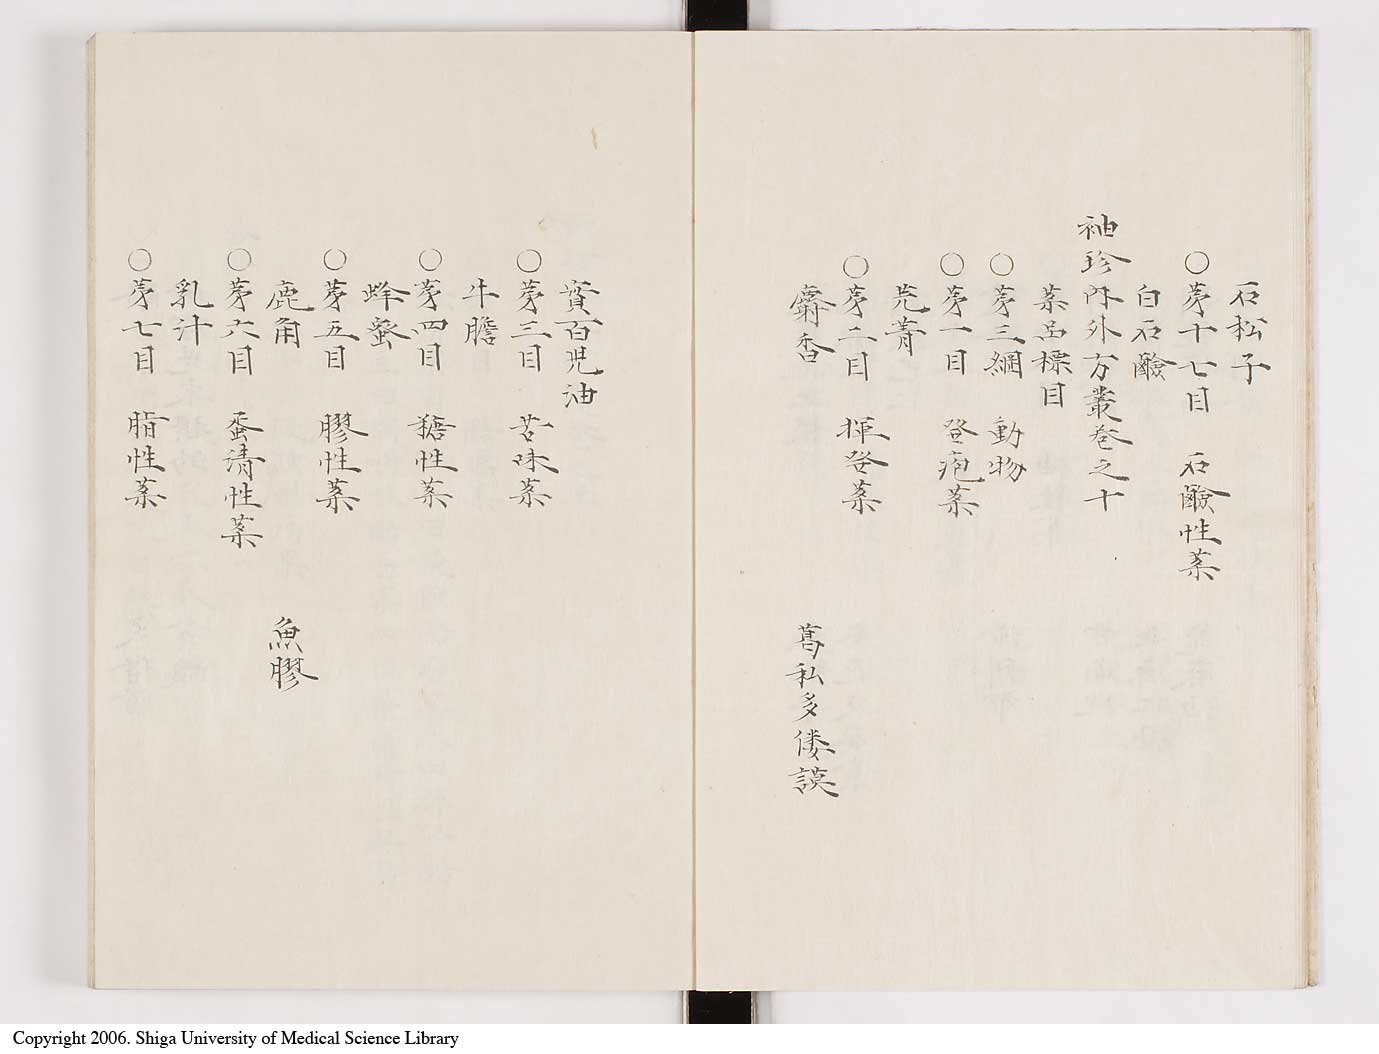 石松子
○茅十七目　石鹸性薬
白石鹸
袖珍内外方叢巻之十
薬品標目
○茅三綱　動物
○茅一目　發疱薬
芫菁
○茅二目　揮發薬
麝香　葛私多僂謨
實百児油
○茅三目　苦味薬
牛膽
○茅四目　糖性薬
蜂蜜
○茅五目　膠性薬
鹿角　魚膠
○茅六目　蛋清性薬
乳汁
○茅七目　脂性薬
Copyright 2006. Shiga University of Medical Science Library